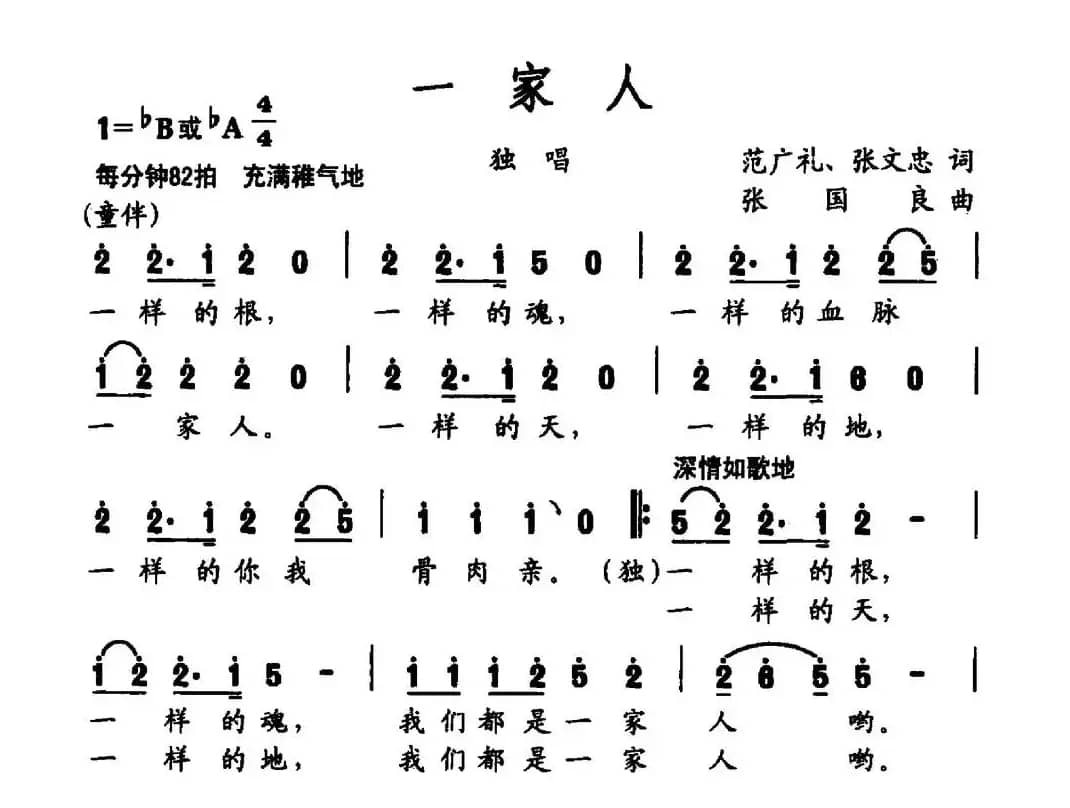 一 家 人
1=♭B或♭A 4/4
独 唱 范广礼、张文忠 词
每分钟82拍 充满稚气地
张 国 良 曲
(童伴)
2 2· 1 2 0 | 2 2· 1 5 0 | 2 2· 1 2 2 5 |
一 样 的 根, 一 样 的 魂, 一 样 的 血 脉
1 2 2 2 0 | 2 2· 1 2 0 | 2 2· 1 6 0 |
一 家 人。 一 样 的 天, 一 样 的 地,
深情如歌地
2 2· 1 2 2 5 | 1 1 1 0 ‖: 5 2 2· 1 2 - |
一 样 的 你 我 骨 肉 亲。 (独) 一 样 的 根,
一 样 的 天,
1 2 2· 1 5 - | 1 1 1 2 5 2 | 2 6 5 5 - |
一 样 的 魂, 我 们 都 是 一 家 人 哟。
一 样 的 地, 我 们 都 是 一 家 人 哟。